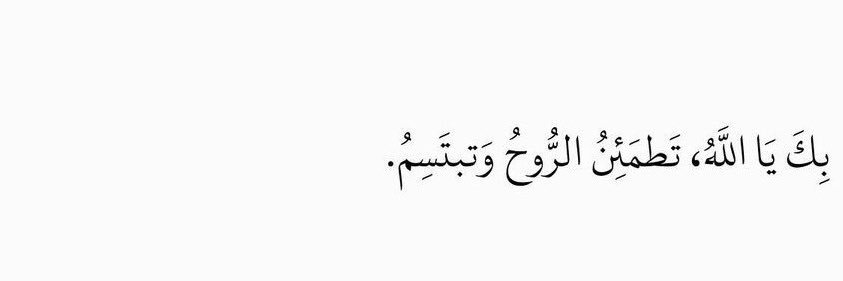 بِكَ يَا اللَّهُ، تَطمَئِنُ الرُّوحُ وَتبتَسِمُ.